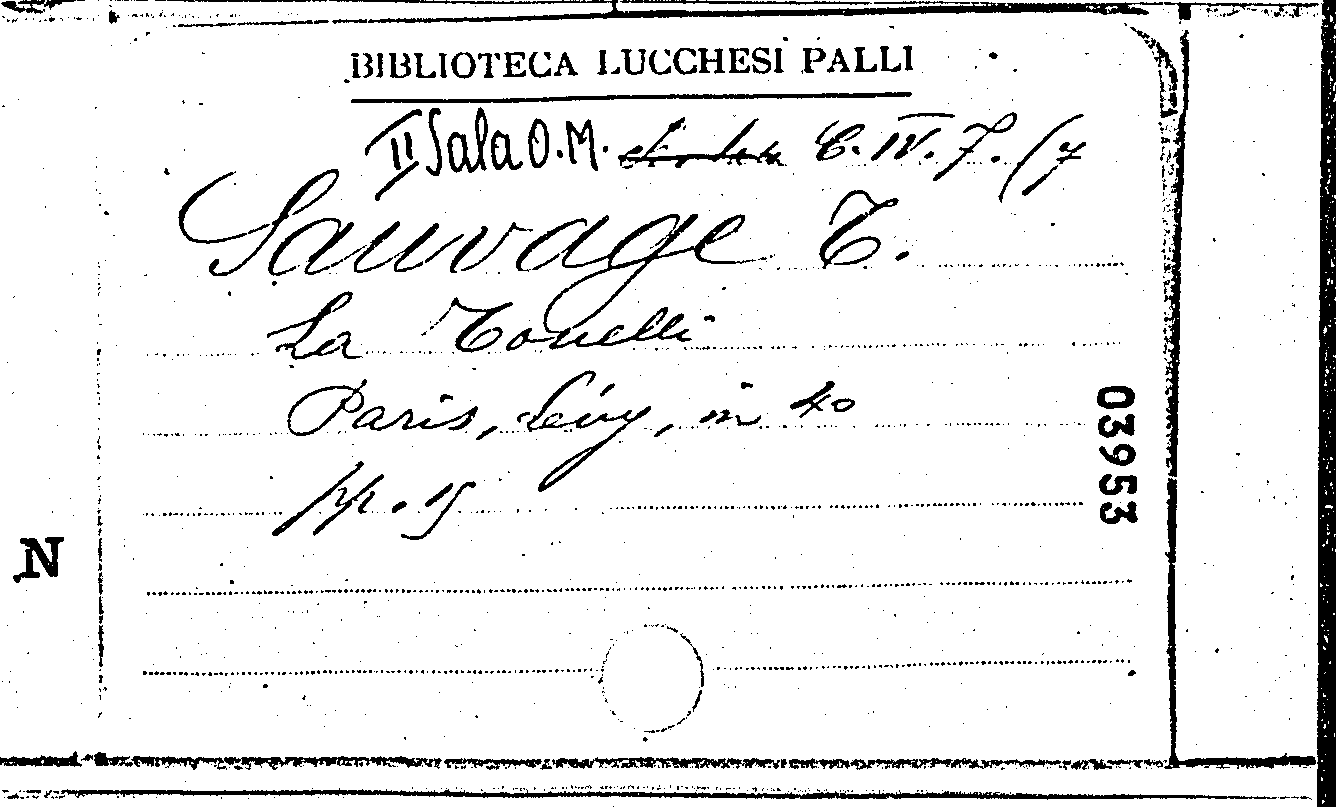 BIBLIOTECA LUCCHESI PALLI
II Sala O.M. C. IV. 7. (7
Sauvage T.
La Tonelli
Paris, Lévy, in 4o
pp. 15
03953
N